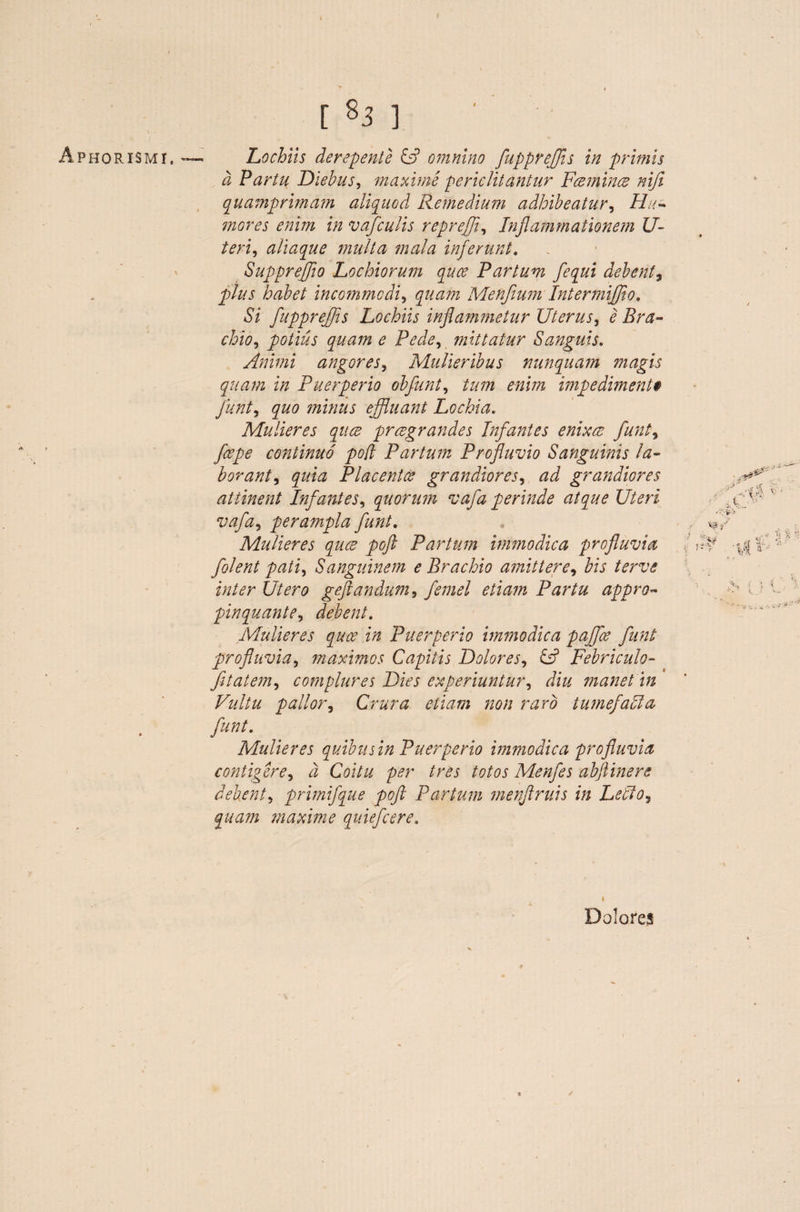 [ 83 ]
APHORISMI. — Lochiis derepentè & omnino ſuppreſſis in primis
à Partu Diebus, maximé periclitantur Fœminæ niſi
quamprimam aliquod Remedium adhibeatur, Hu-
mores enim in vaſculis repreſſi, Inflammationem U-
teri, aliaque multa mala inferunt.
Suppreſſio Lochiorum quæ Partum ſequi debent,
plus habet incommodi, quam Menſium Intermiſſio.
Si ſuppreſſis Lochiis inflammetur Uterus, è Bra-
chio, potiús quam e Pede, mittatur Sanguis.
Animi angores, Mulieribus nunquam magis
quam in Puerperio obſunt, tum enim impedimento
ſunt, quo minus effluant Lochia.
Mulieres quæ prægrandes Infantes enixæ ſunt,
ſæpe continuó poſt Partum Profluvio Sanguinis la-
borant, quia Placentæ grandiores, ad grandiores
attinent Infantes, quorum vaſa perinde atque Uteri
vaſa, perampla ſunt.
Mulieres quæ poſt Partum immodica profluvia
ſolent pati, Sanguinem e Brachio amittere, bis terve
inter Utero geſtandum, ſemel etiam Partu appro-
pinquante, debent.
Mulieres quæ in Puerperio immodica paſſæ ſunt
profluvia, maximos Capitis Dolores, & Febriculo-
ſitatem, complures Dies experiuntur, diu manet in
Vultu pallor, Crura etiam non rarò tumefacta
ſunt.
Mulieres quibus in Puerperio immodica profluvia
contigêre, à Coitu per tres totos Menſes abſtinere
debent, primiſque poſt Partum menſtruis in Lecto,
quam maxime quieſcere.
Dolores